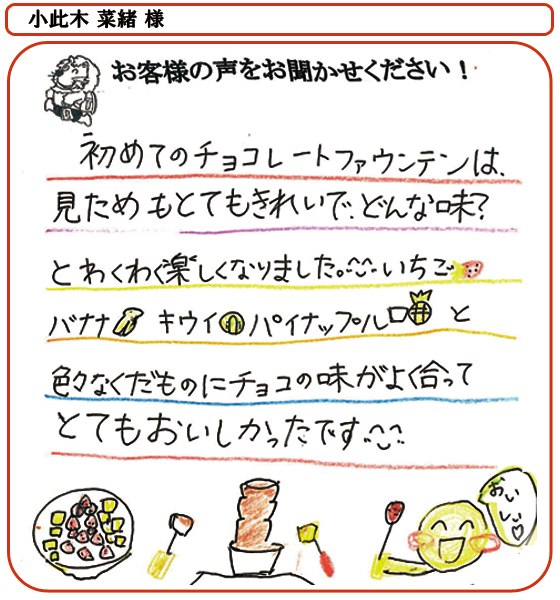 小此木 菜緒 様
お客様の声をお聞かせください！
初めてのチョコレートファウンテンは、
見ためもとてもきれいで、どんな味？
とわくわく楽しくなりました。いちご
バナナ キウイ パイナップル と
色々なくだものにチョコの味がよく合って
とてもおいしかったです。
おいしい